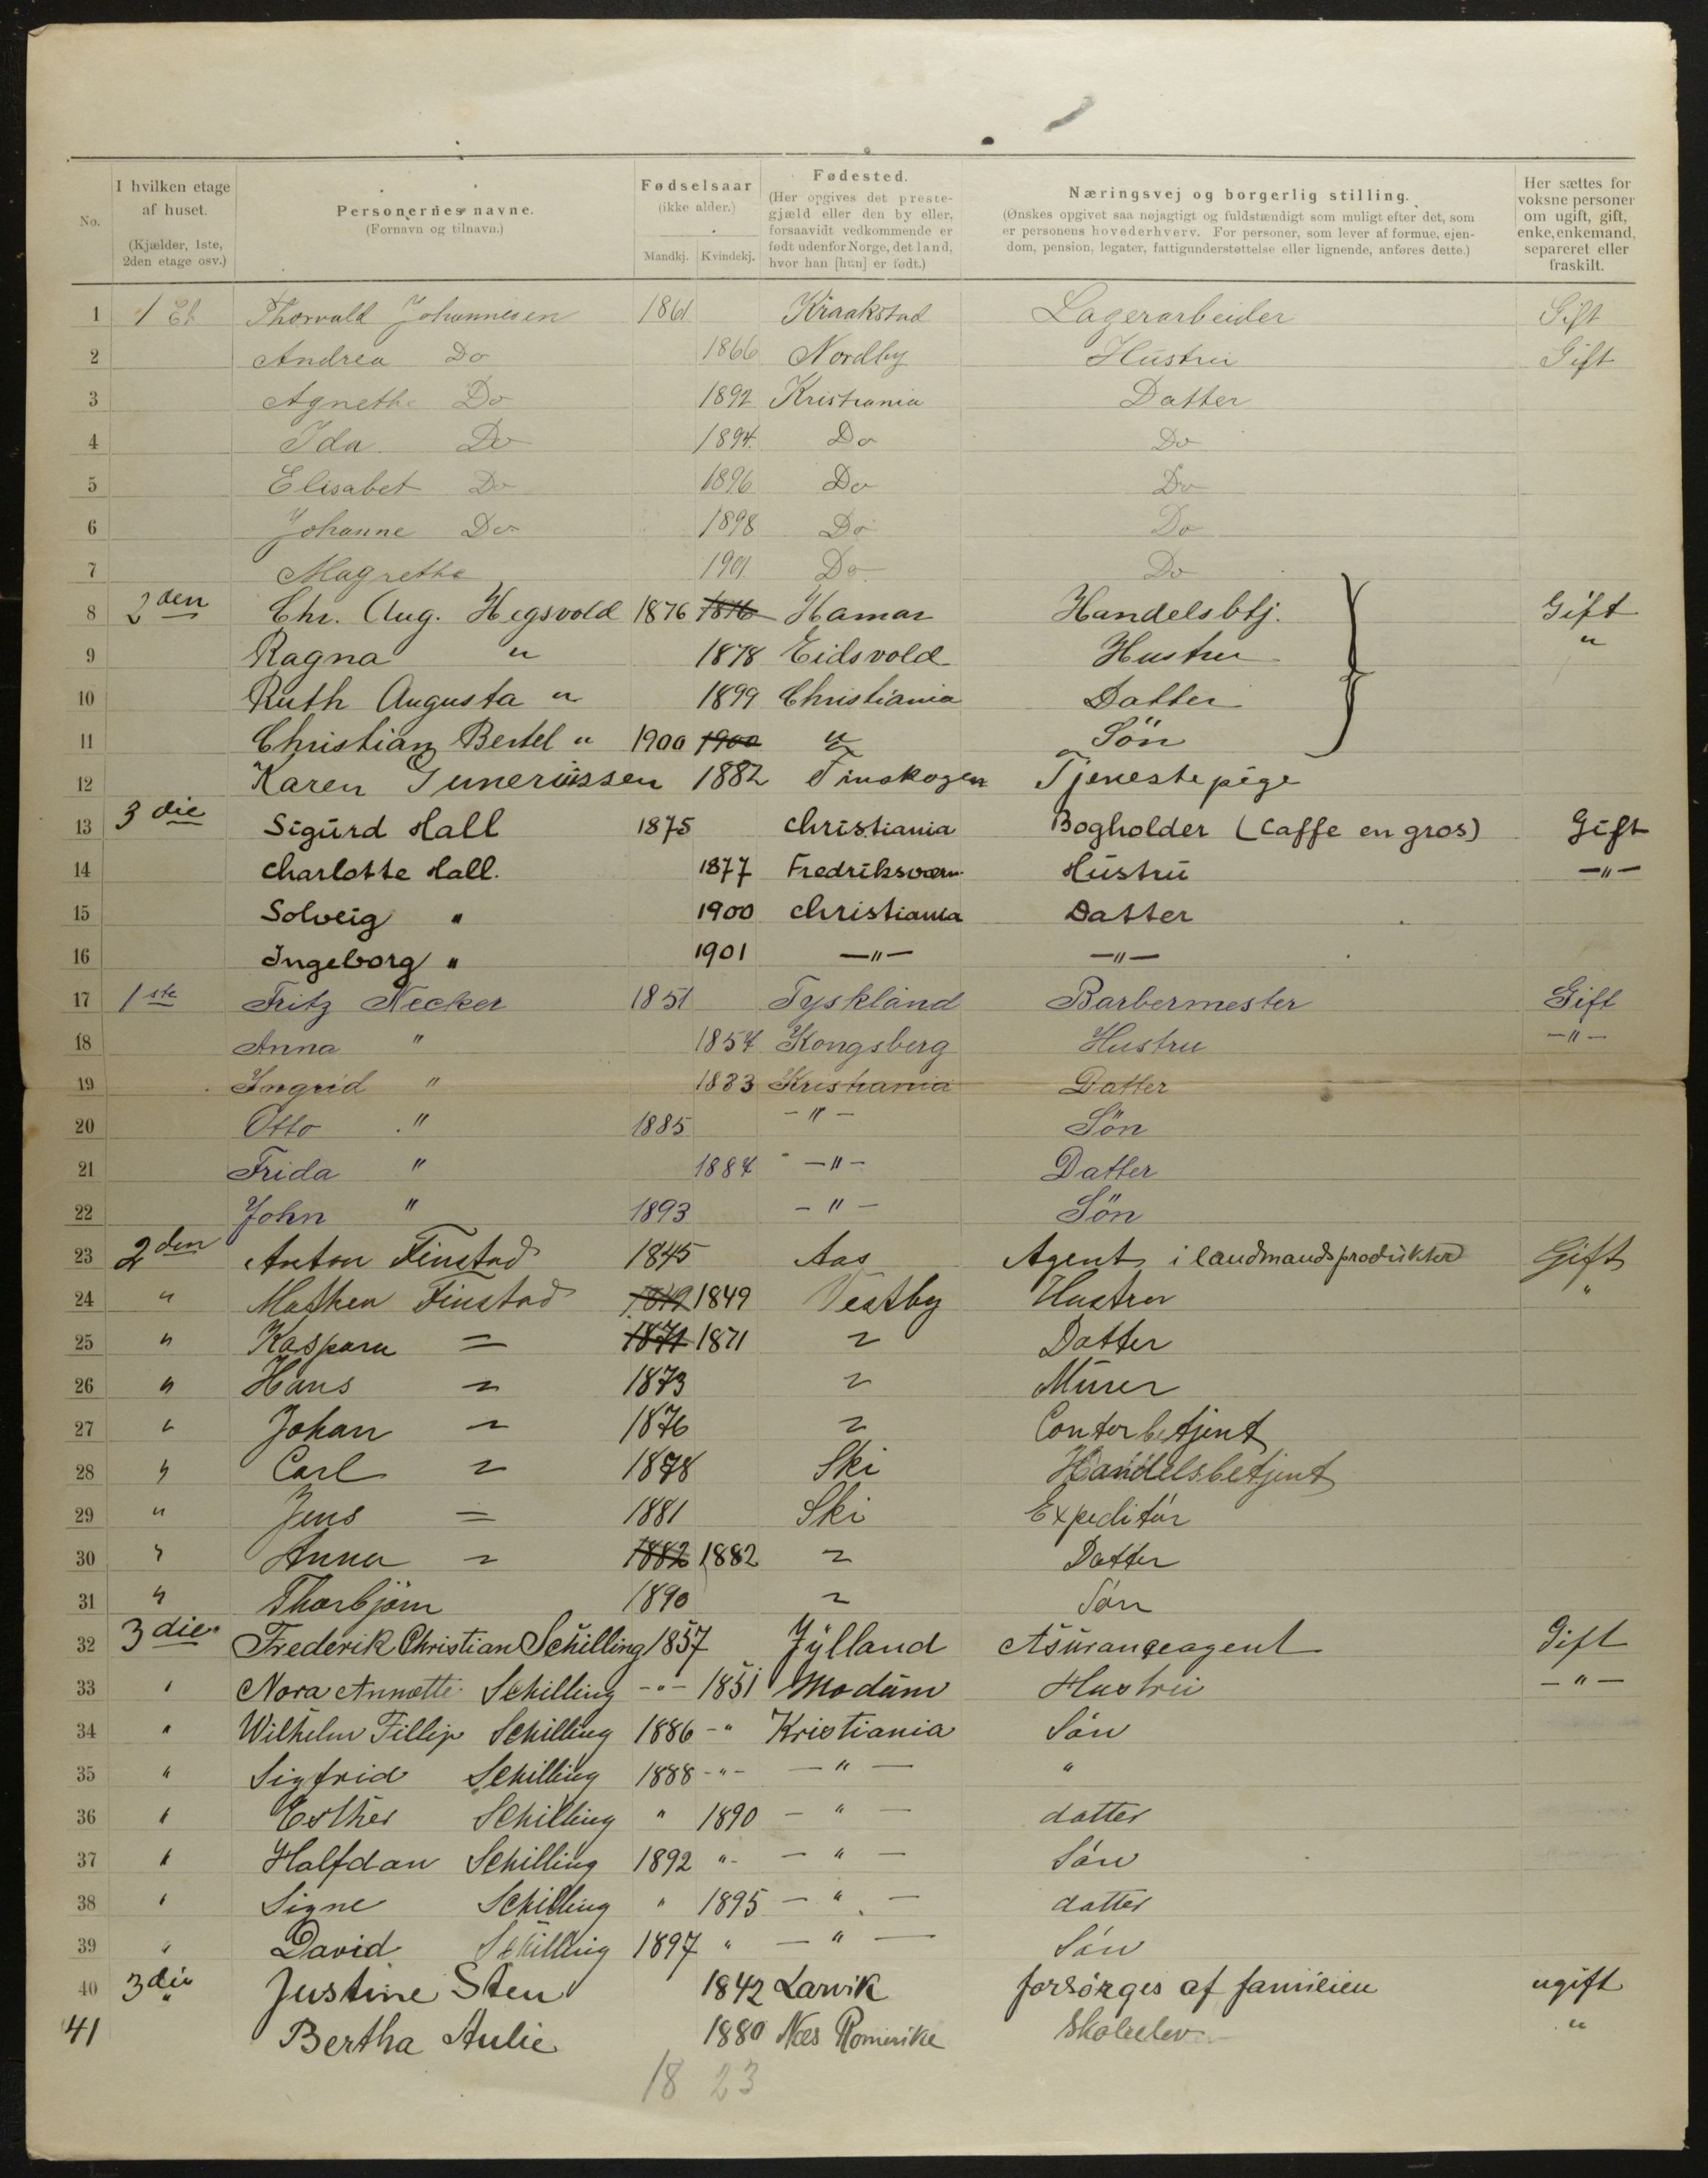 I hvilken etage af huset. (Kjælder, 1ste, 2den etage osv.)
No.
Personernes navne. (Fornavn og tilnavn.)
Fødselsaar (ikke alder.)
Mandkj. Kvindekj.
Fødested. (Her opgives det prestegjæld eller den by eller, forsaavidt vedkommende er født udenfor Norge, det land, hvor han [hun] er født.)
Næringsvej og borgerlig stilling. (Ønskes opgivet saa nøjagtigt og fuldstændigt som muligt efter det, som er personens hovederhverv. For personer, som lever af formue, ejendom, pension, legater, fattigunderstøttelse eller lignende, anføres dette.)
Her sættes for voksne personer om ugift, gift, enke, enkemand, separeret eller fraskilt.
1 1 Et Thorvald Johannesen 1861 Kraakstad Lagerarbeider Gift
2 Andrea Do 1866 Nordby Hustru Gift
3 Agnethe Do 1892 Kristiania Datter
4 Ida Do 1894. Do Do
5 Elisabet Do 1896 Do Do
6 Johanne Do 1898 Do Do
7 Magrethe 1901 Do Do
8 2den Chr. Aug. Hegsvold 1876 1876 Hamar Handelsbtj. Gift
9 Ragna " 1878 Eidsvold Hustru "
10 Ruth Augusta " 1899 Christiania Datter
11 Christian Bertel " 1900 1900 " Sön
12 Karen Gunerüssen 1882 Finskogen Tjenestepige
13 3die Sigürd Hall 1875 Christiania Bogholder (Caffe en gros) Gift
14 Charlotte Hall. 1877 Fredriksværn Hüstrü —"—
15 Solveig " 1900 Christiania Datter
16 Ingeborg " 1901 —"— —"—
17 1ste Fritz Necker 1851 Tyskland Barbermester Gift
18 Anna " 1857 Kongsberg Hustru —"—
19 Ingrid " 1883 Kristiania Datter
20 Otto " 1885 —"— Sön
21 Frida " 1887 —"— Datter
22 John " 1893 —"— Sön
23 2den Anton Finstad 1845 Aas Agent i landmandsprodükter Gift
24 " Mathea Finstad 1849 1849 Vestby Hustru "
25 " Kaspara = 1871 1871 " Datter
26 " Hans " 1873 " Mürer
27 " Johan " 1876 " Contorbetjent
28 " Carl " 1878 Ski Handelsbetjent
29 " Jens = 1881 Ski Expeditör
30 " Anna " 1882 1882 " Datter
31 " Thorbjörn 1890 " Sön
32 3die Frederik Christian Schilling 1857 Jylland Asüranceagent Gift
33 " Nora Annette Schilling -"- 1851 Modüm Hustrü —"—
34 " Wilhelm Fillip Schilling 1886 -" Kristiania Sön
35 " Sigfrid Schilling 1888 -"- —"— "
36 " Esther Schilling " 1890 —"— datter
37 " Halfdan Schilling 1892 "- —"— Sön
38 " Signe Schilling " 1895 —"— datter
39 " David Schilling 1897 " —"— Sön
40 3die " Justine Sten 1842 Larvik forsörges af familien ugift
41 Bertha Aulie 1880 Næs Romerike Skoleelev "
18 23